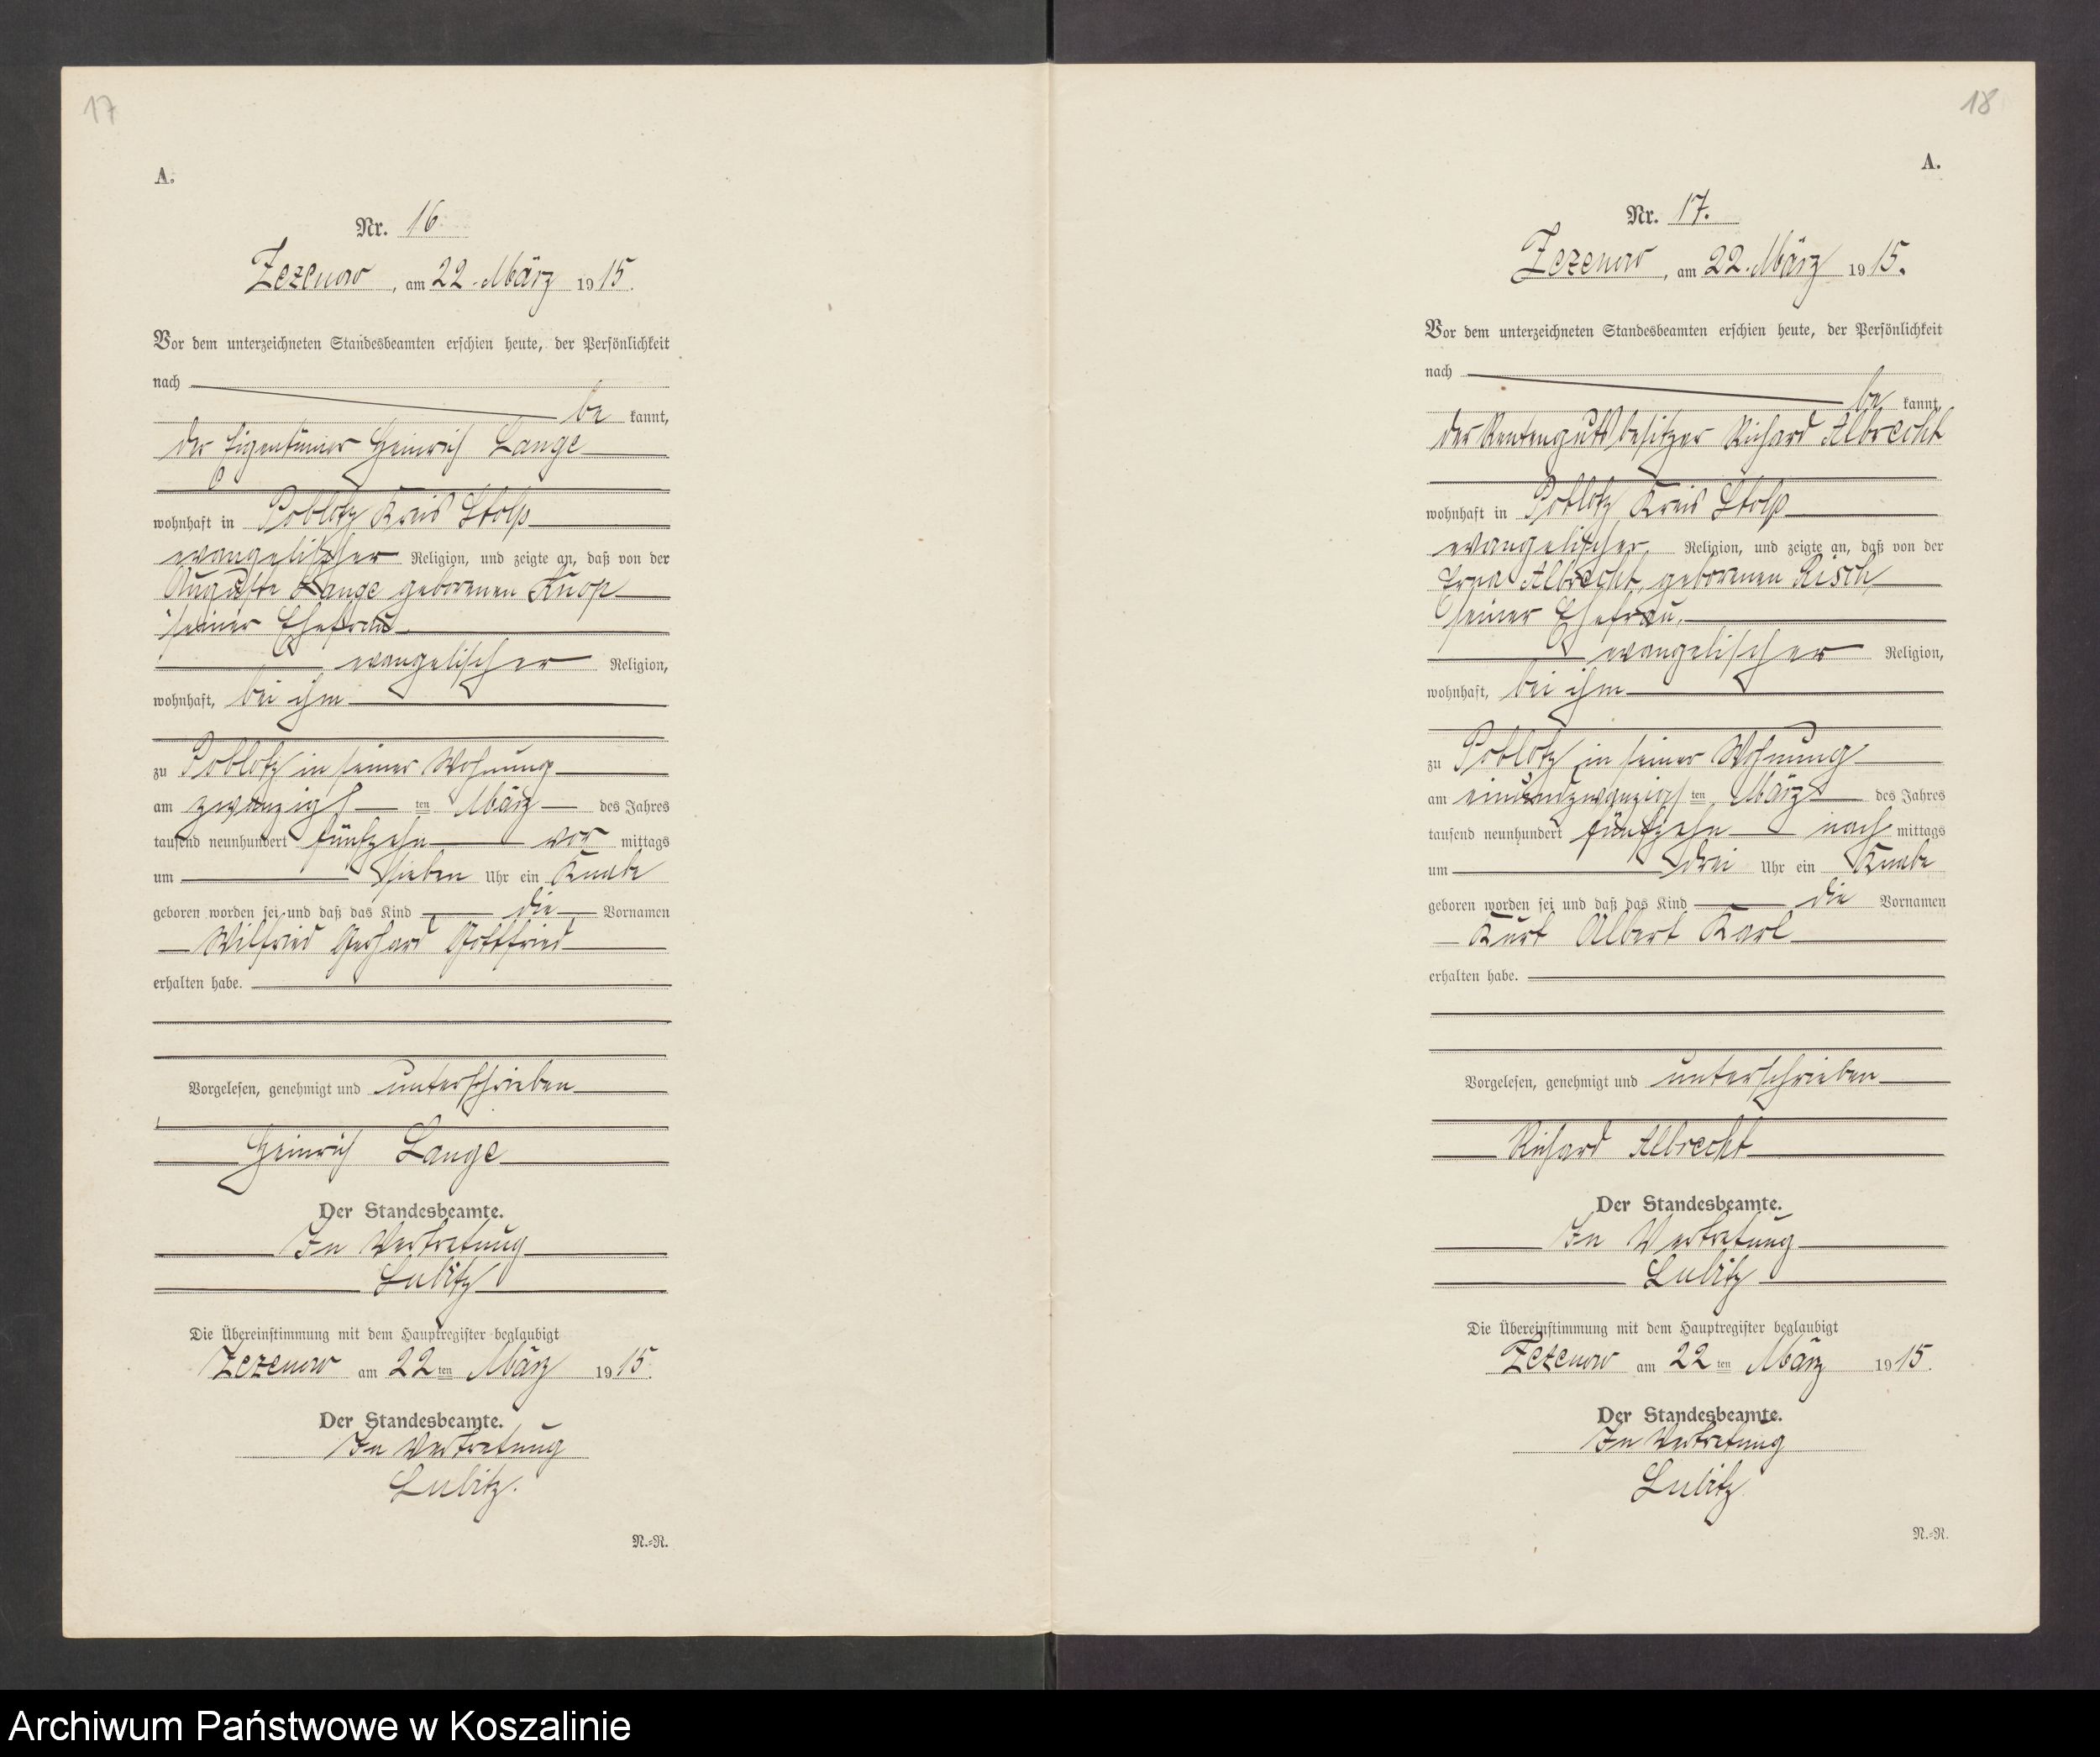 17
A.
Nr. 16.
Zezenow, am 22. März 1915.
Vor dem unterzeichneten Standesbeamten erschien heute, der Persönlichkeit
nach
be kannt,
der Eigentümer Heinrich Lange
wohnhaft in Poblotz Kreis Stolp
evangelischer Religion, und zeigte an, daß von der
Auguste Lange geborenen Knop
seiner Ehefrau
evangelischer Religion,
wohnhaft, bei ihm
zu Poblotz in seiner Wohnung
am zwanzigsten März des Jahres
tausend neunhundert fünfzehn vor mittags
um sieben Uhr ein Knabe
geboren worden sei und daß das Kind die Vornamen
Wilfried Gerhard Gottfried
erhalten habe.
Vorgelesen, genehmigt und unterschrieben
Heinrich Lange
Der Standesbeamte.
In Vertretung
Lubitz
Die Übereinstimmung mit dem Hauptregister beglaubigt
Zezenow am 22ten März 1915.
Der Standesbeamte.
In Vertretung
Lubitz.
N.-R.
18
A.
Nr. 17.
Zezenow, am 22. März 1915.
Vor dem unterzeichneten Standesbeamten erschien heute, der Persönlichkeit
nach
be kannt,
der Rentengutsbesitzer Richard Albrecht
wohnhaft in Poblotz Kreis Stolp
evangelischer Religion, und zeigte an, daß von der
Erna Albrecht, geborenen Risch,
seiner Ehefrau,
evangelischer Religion,
wohnhaft, bei ihm
zu Poblotz in seiner Wohnung
am einundzwanzigsten März des Jahres
tausend neunhundert fünfzehn nach mittags
um drei Uhr ein Knabe
geboren worden sei und daß das Kind die Vornamen
Kurt Albert Karl
erhalten habe.
Vorgelesen, genehmigt und unterschrieben
Richard Albrecht
Der Standesbeamte.
In Vertretung
Lubitz
Die Übereinstimmung mit dem Hauptregister beglaubigt
Zezenow am 22ten März 1915.
Der Standesbeamte.
In Vertretung
Lubitz
N.-R.
Archiwum Państwowe w Koszalinie